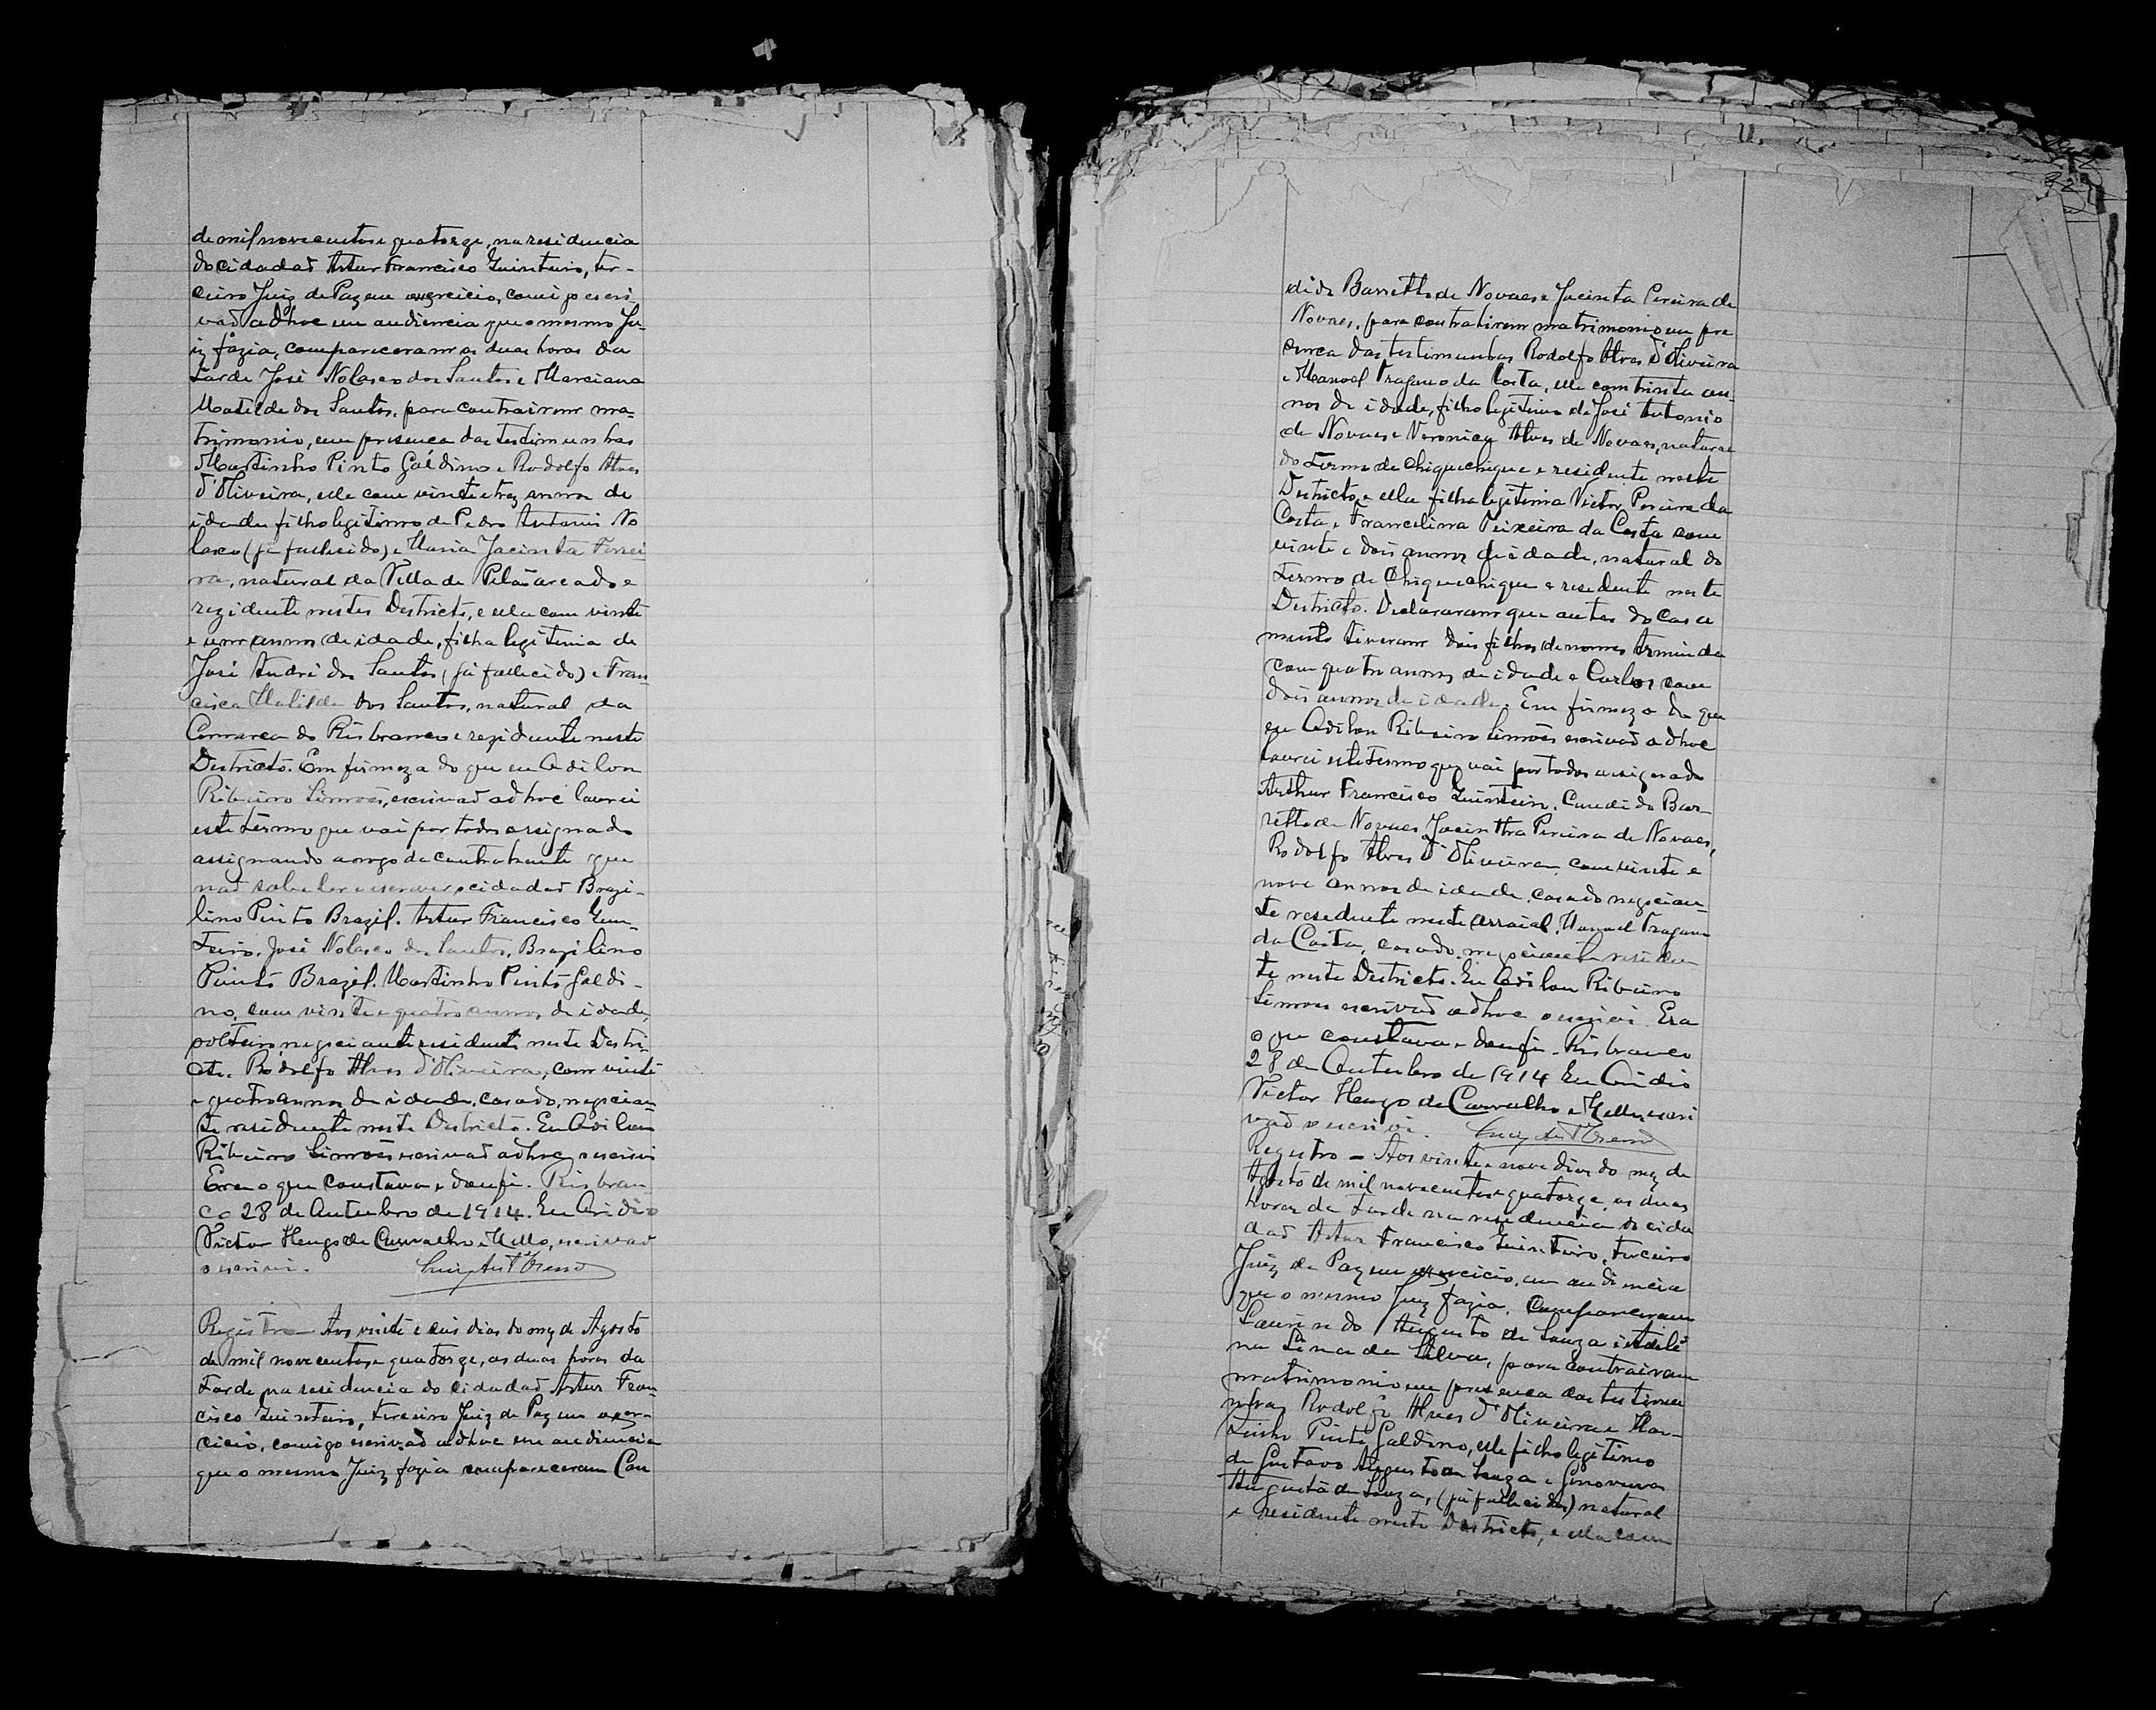 de mil novecentos e quatorze, na residencia
do cidadaõ Artur Francisco Quinteiro, ter-
ceiro Juiz de Paz em exercicio, comigo escri-
vaõ adhoc em audiencia que o mesmo Ju-
iz fazia, compareceram as duas horas da
tarde José Nolasco dos Santos e Marciana
Matilde dos Santos, para contrairem ma-
trimonio, em presença das testimunhas
Martinho Pinto Galdino e Rodolfo Alves
d'Oliveira, elle com vinte e trez annos de
idade filho legitimo de Pedro Antonio No
lasco (já fallecido) e Maria Jacinta Ferrei
ra, natural da Villa de Pilaõ arcado e
rezidente nestes Destricto, e ella com vinte
e um annos de idade, filha legitima de
José André dos Santos (já fallecido) e Fran
cisca Matilde dos Santos, natural da
Comarca do Rio branco e rezidente neste
Destricto. Em firmeza do que eu Adilon
Ribeiro Simoẽs, escrivaõ adhoc lavrei
este termo que vai por todos assignado
assignando a rogo da contratante que
naõ sabe ler e escrever o cidadaõ Brazi-
lino Pinto Brazil. Artur Francisco Quin-
teiro. José Nolasco dos Santos. Brazilino
Pinto Brazil. Martinho Pinto Galdi-
no, com vinte e quatro annos de idade,
solteiro, negociante residente neste Destri-
cto. Rodolfo Alves d'Oliveira, com vinte
e quatro annos de idade, casado, negocian-
te residente neste Destricto. Eu Adilon
Ribeiro Simoẽs escrivaõ adhoc o escrivi
Era o que constava e dou fé. Rio bran-
co 28 de Outubro de 1914. Eu Ovidio
Victor Hugo de Carvalho e Mello, escrivaõ
o escrivi.
Registro - Aos vinte e seis dias do mez de Agosto
de mil novecentos e quatorze, as duas horas da
tarde na residencia do cidadaõ Artur Fran-
cisco Quinteiro, terceiro Juiz de Paz em exer-
cicio, comigo escrivaõ adhoc em audiencia
que o mesmo Juiz fazia compareceram Can
dido Barretto de Novaes e Jacinta Pereira de
Novaes, para contratirem matrimonio em pre
sença das testimunhas Rodolfo Alves d'Oliveira
e Manoel Fragano da Costa, elle com trinta an-
nos de idade, filho legitimo de José Antonio
de Novaes e Veronica Alves de Novaes, natural
do termo de Chiquechique e residente neste
Destricto, e ella filha legitima Victor Pereira da
Costa e Francelina Teixeira da Costa com
vinte e dois annos de idade, natural do
termo de Chiquechique e residente neste
Destricto. Declararam que antes do casa
mento tiveram dois filhos de nomes Arminda
com quatro annos de idade e Carlos com
dois annos de idade. Em firmeza do que
eu Adilon Ribeiro Simoẽs escrivaõ adhoc
lavrei este termo que vai por todos assignado
Arthur Francisco Quinteiro. Candido Bar-
retto de Novaes Jacintha Pereira de Novaes,
Rodolfo Alves d'Oliveira, com vinte e
nove annos de idade, casado negocian-
te residente neste arraial. Manoel Fragano
da Costa, casado, negociante residen
te neste Destricto. Eu Adilon Ribeiro
Simoẽs escrivaõ adhoc o escrivi. Era
o que constava e dou fé. Rio branco
28 de Outubro de 1914 Eu Ovidio
Victor Hugo de Carvalho e Mello, escri
vaõ o escrivi.
Registro - Aos vinte e nove dias do mez de
Agosto de mil novecentos e quatorze, as duas
horas da tarde na residencia do cida
daõ Artur Francisco Quinteiro, terceiro
Juiz de Paz em exercicio, em audiencia
que o mesmo Juiz fazia, compareceram
Laurindo Augusto de Souza e
na Lina da Silva, para contrairem
matrimonio em presença das testimu
nhas Rodolfo Alves d'Oliveira e Mar-
tinho Pinto Galdino, elle filho legitimo
de Gustavo Augusto de Souza e Genoveva
Augusta de Souza, (já fallecidos) natural
e residente neste Destricto, e ella com